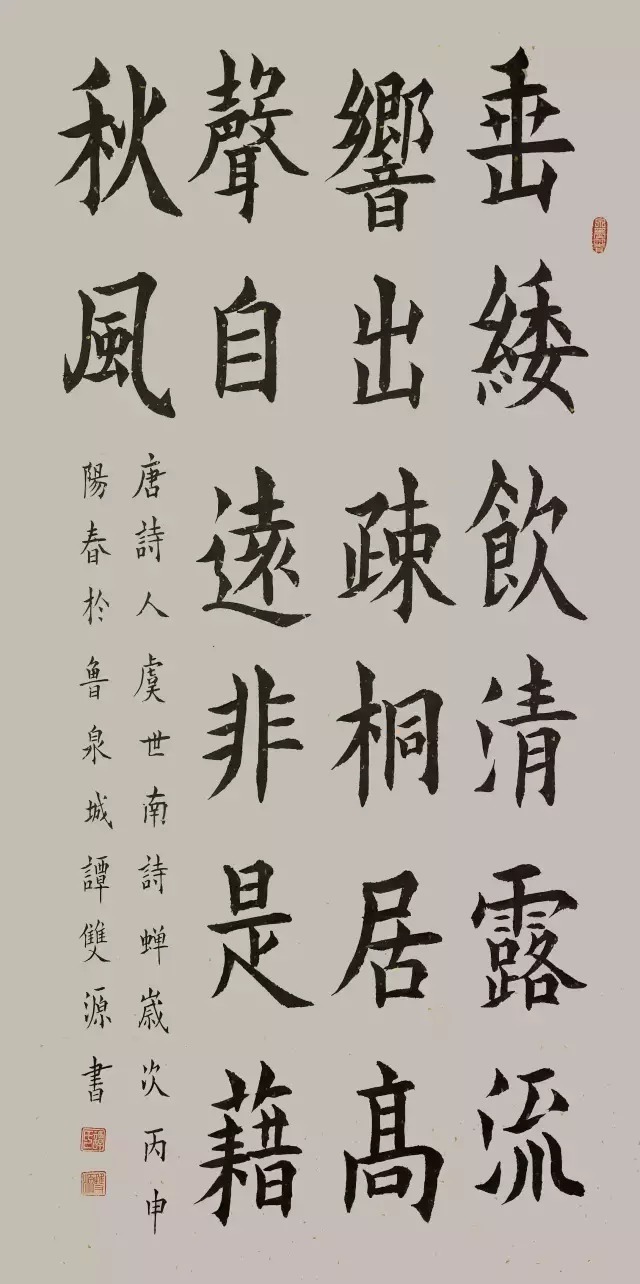 垂緌飲清露流
響出疎桐居高
聲自遠非是藉
秋風
唐詩人虞世南詩蝉歲次丙申
陽春於魯泉城譚雙源書